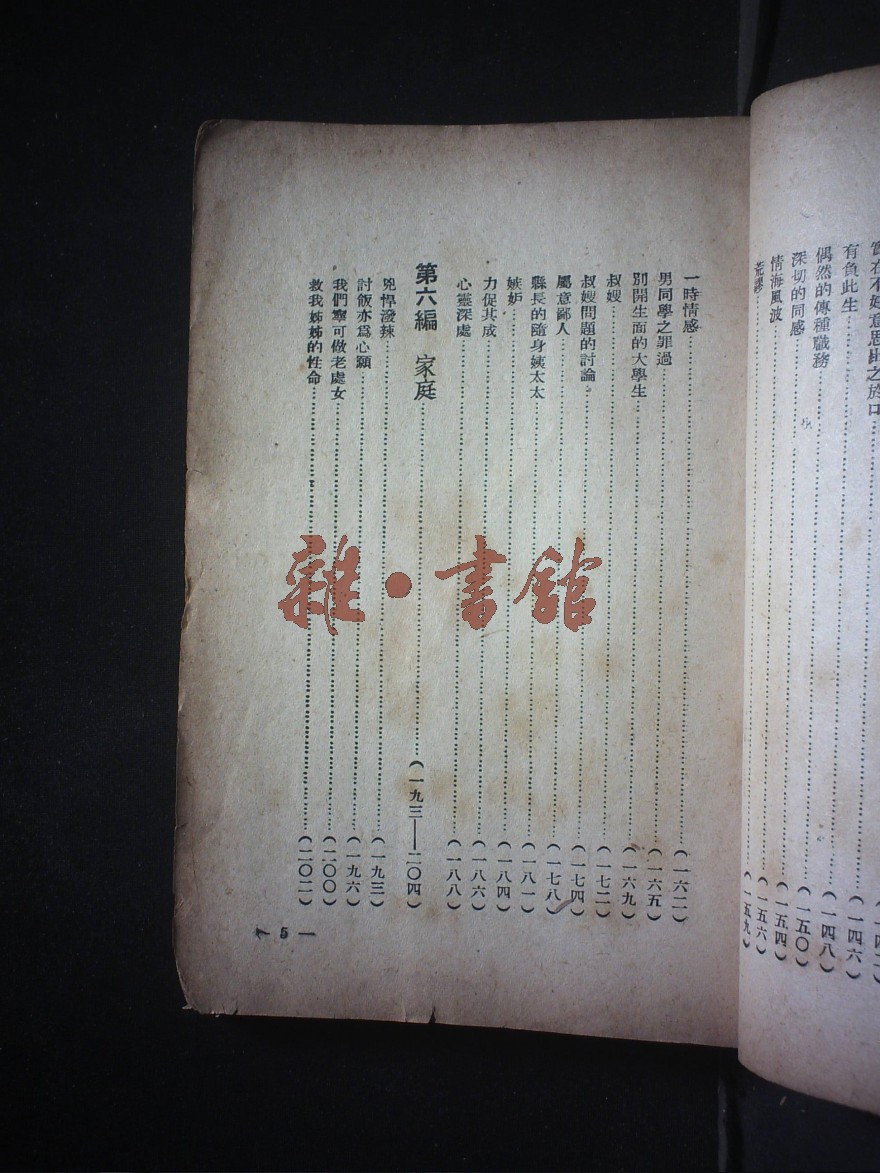 實在不好意思出之於口……(一四二)
有負此生……(一四六)
偶然的傳種職務……(一四八)
深切的同感……(一五〇)
情海風波……(一五四)
荒謬……(一五六)
(一五九)
一時情感……(一六二)
男同學之罪過……(一六五)
別開生面的大學生……(一六九)
叔嫂……(一七二)
叔嫂問題的討論……(一七四)
屬意鄙人……(一七八)
縣長的隨身姨太太……(一八一)
嫉妒……(一八四)
力促其成……(一八六)
心靈深處……(一八八)
第六編 家庭……(一九三——二〇四)
兇悍潑辣……(一九三)
討飯亦為心願……(一九六)
我們寧可做老處女……(二〇〇)
救我姊姊的性命……(二〇二)
— 5 —
雜·書館